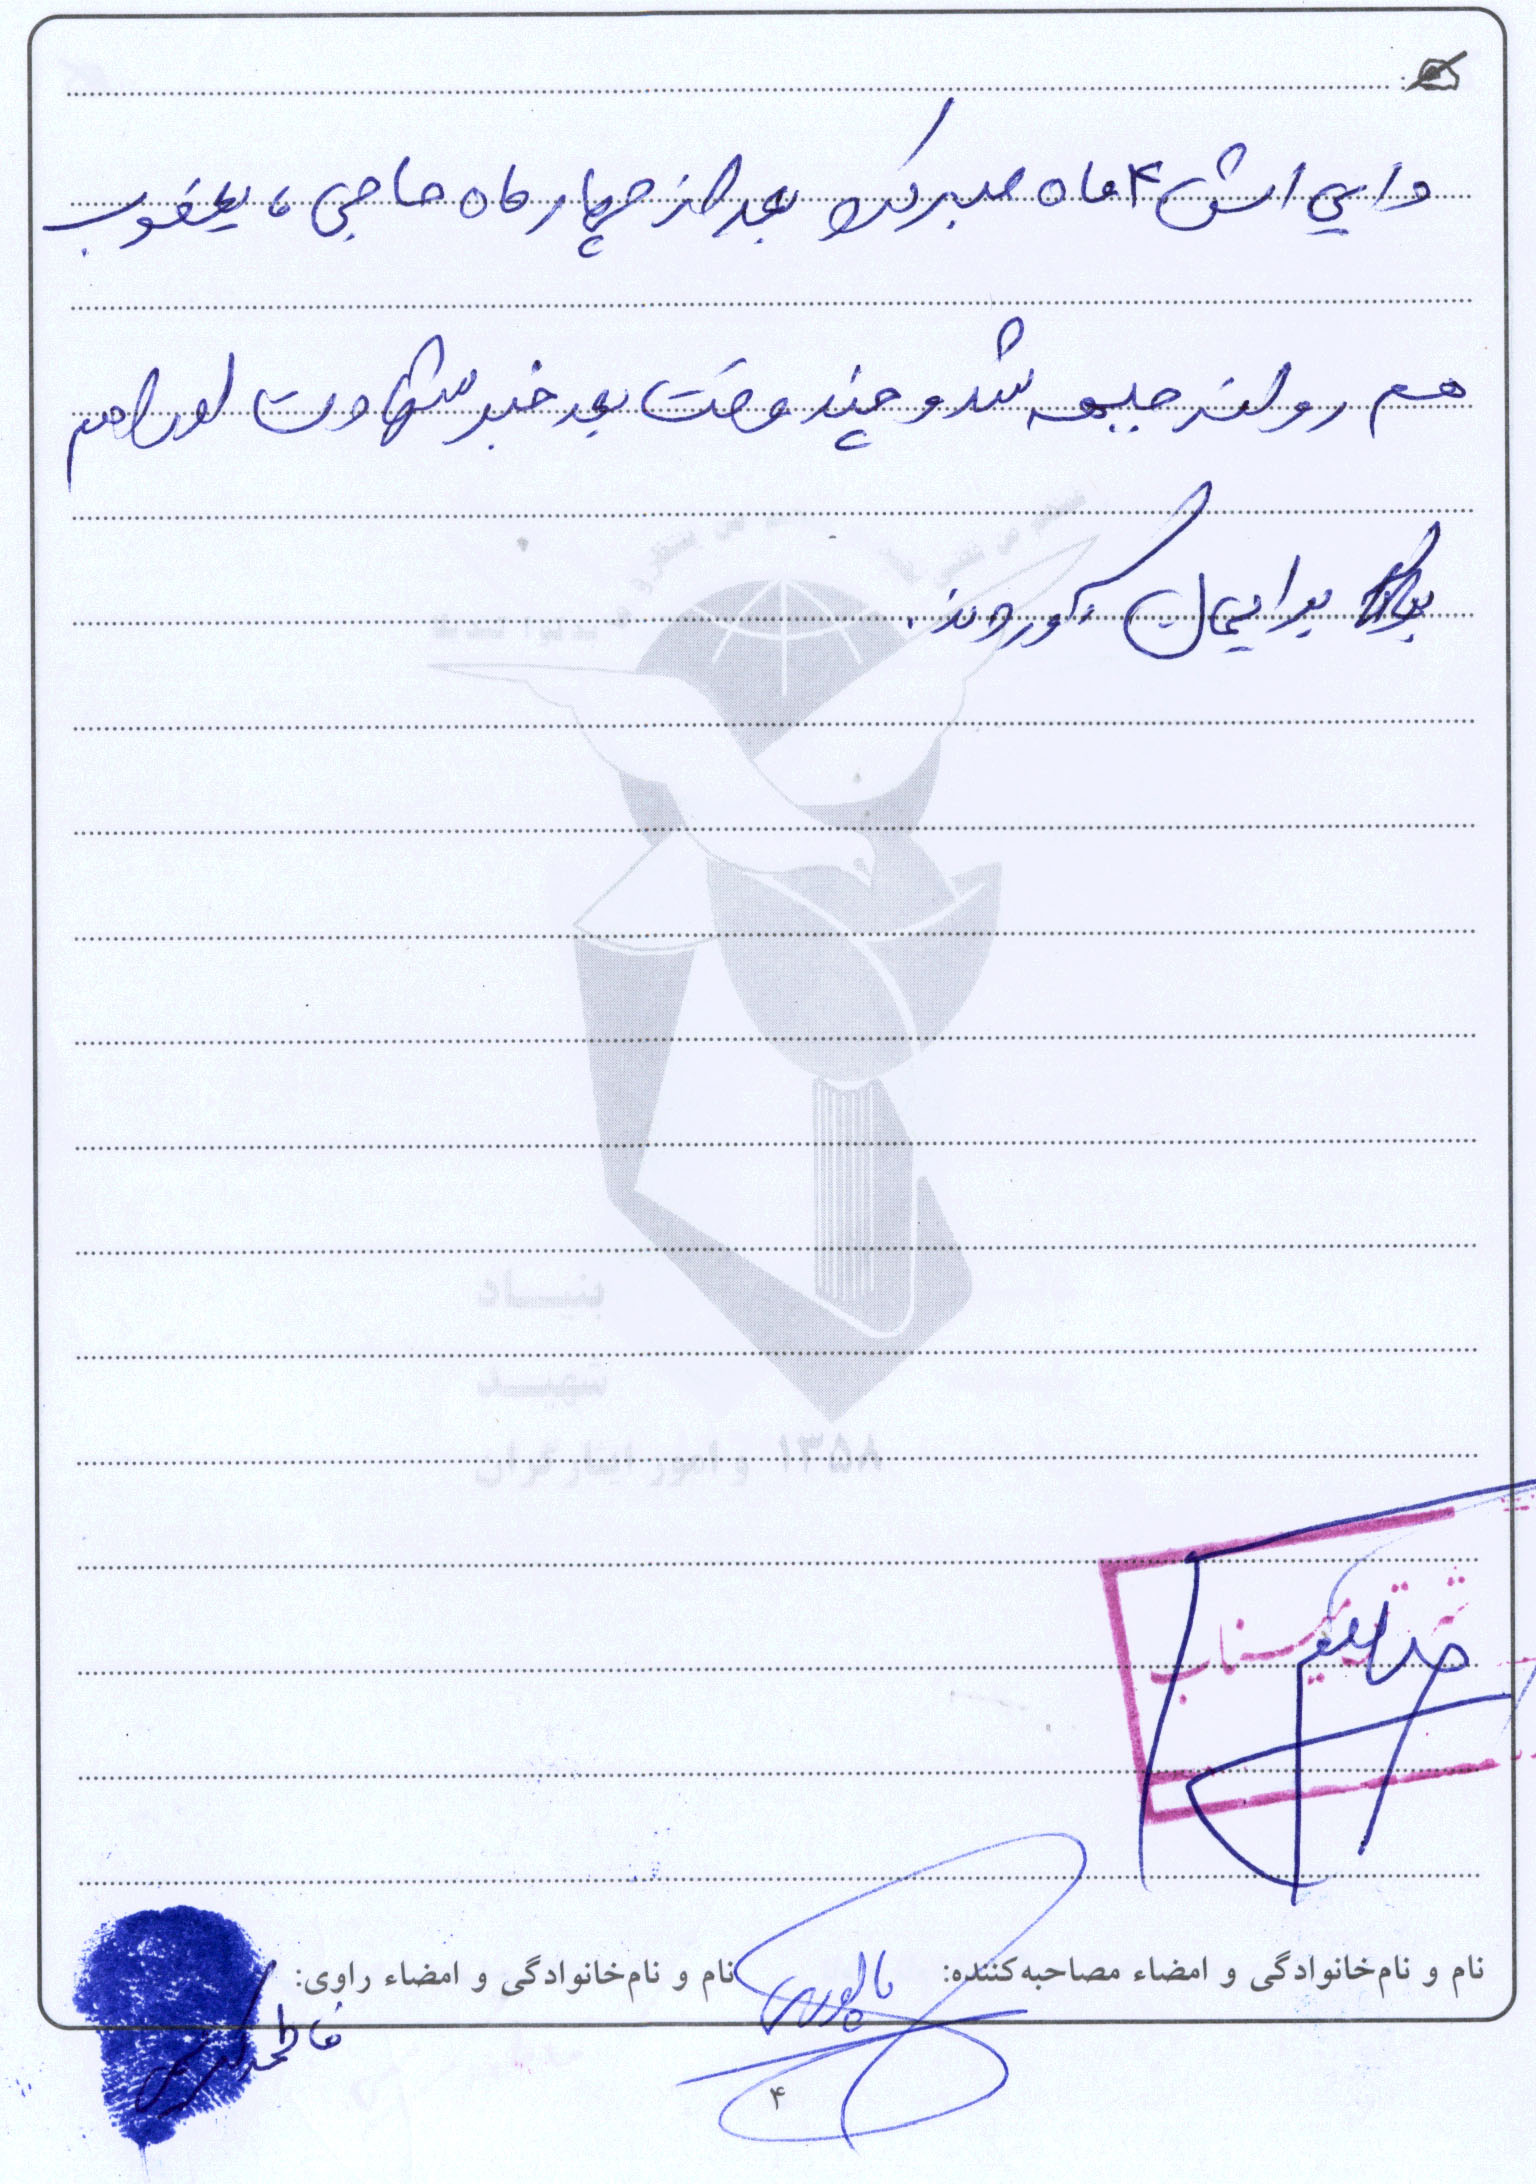 دایی اش ۴ ماه صبر کرد بعد از چهار ماه حاجی، یعقوب
هم روانه جبهه شد و چند وقت بعد خبر شهادت او را هم
برایمان آوردند.
بنیاد
شهید
۱۳۵۸ و امور ایثارگران
نام و نام‌خانوادگی و امضاء مصاحبه‌کننده:
نام و نام‌خانوادگی و امضاء راوی:
فاطمه کریمی
۴